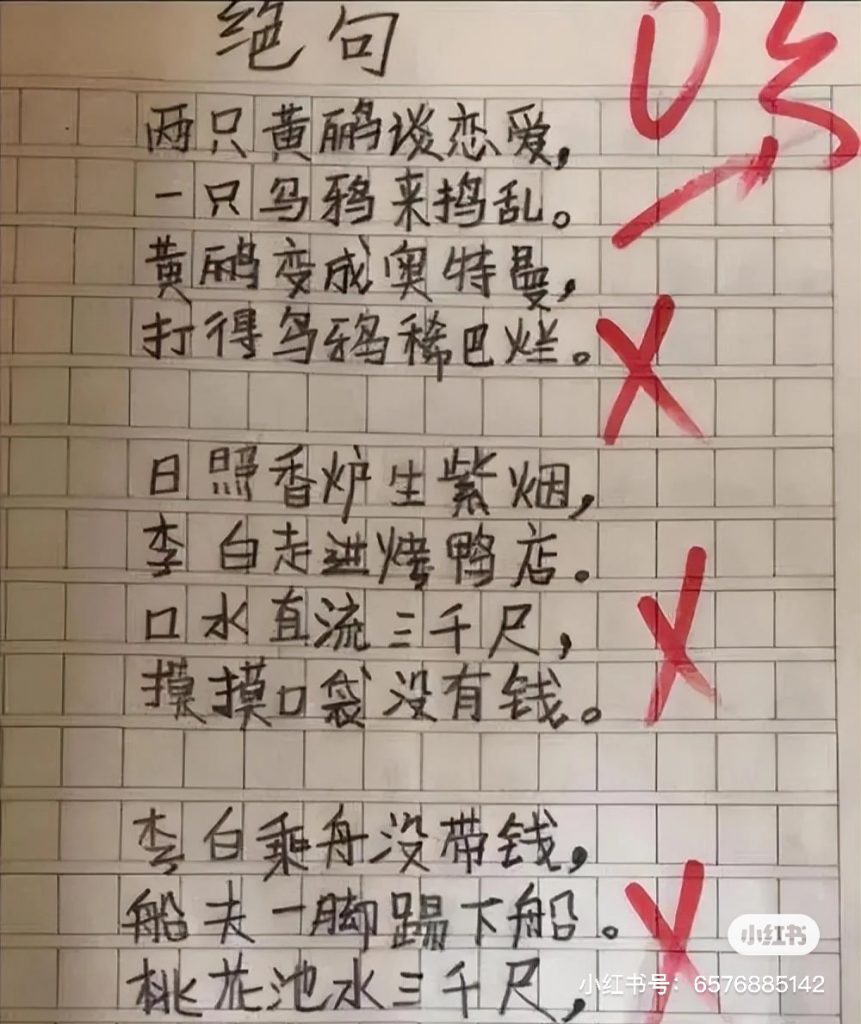 绝句
两只黄鹂谈恋爱，
一只乌鸦来捣乱。
黄鹂变成奥特曼，
打得乌鸦稀巴烂。
日照香炉生紫烟，
李白走进烤鸭店。
口水直流三千尺，
摸摸口袋没有钱。
李白乘舟没带钱，
船夫一脚踢下船。
桃花池水三千尺，
小红书
小红书号：6576885142